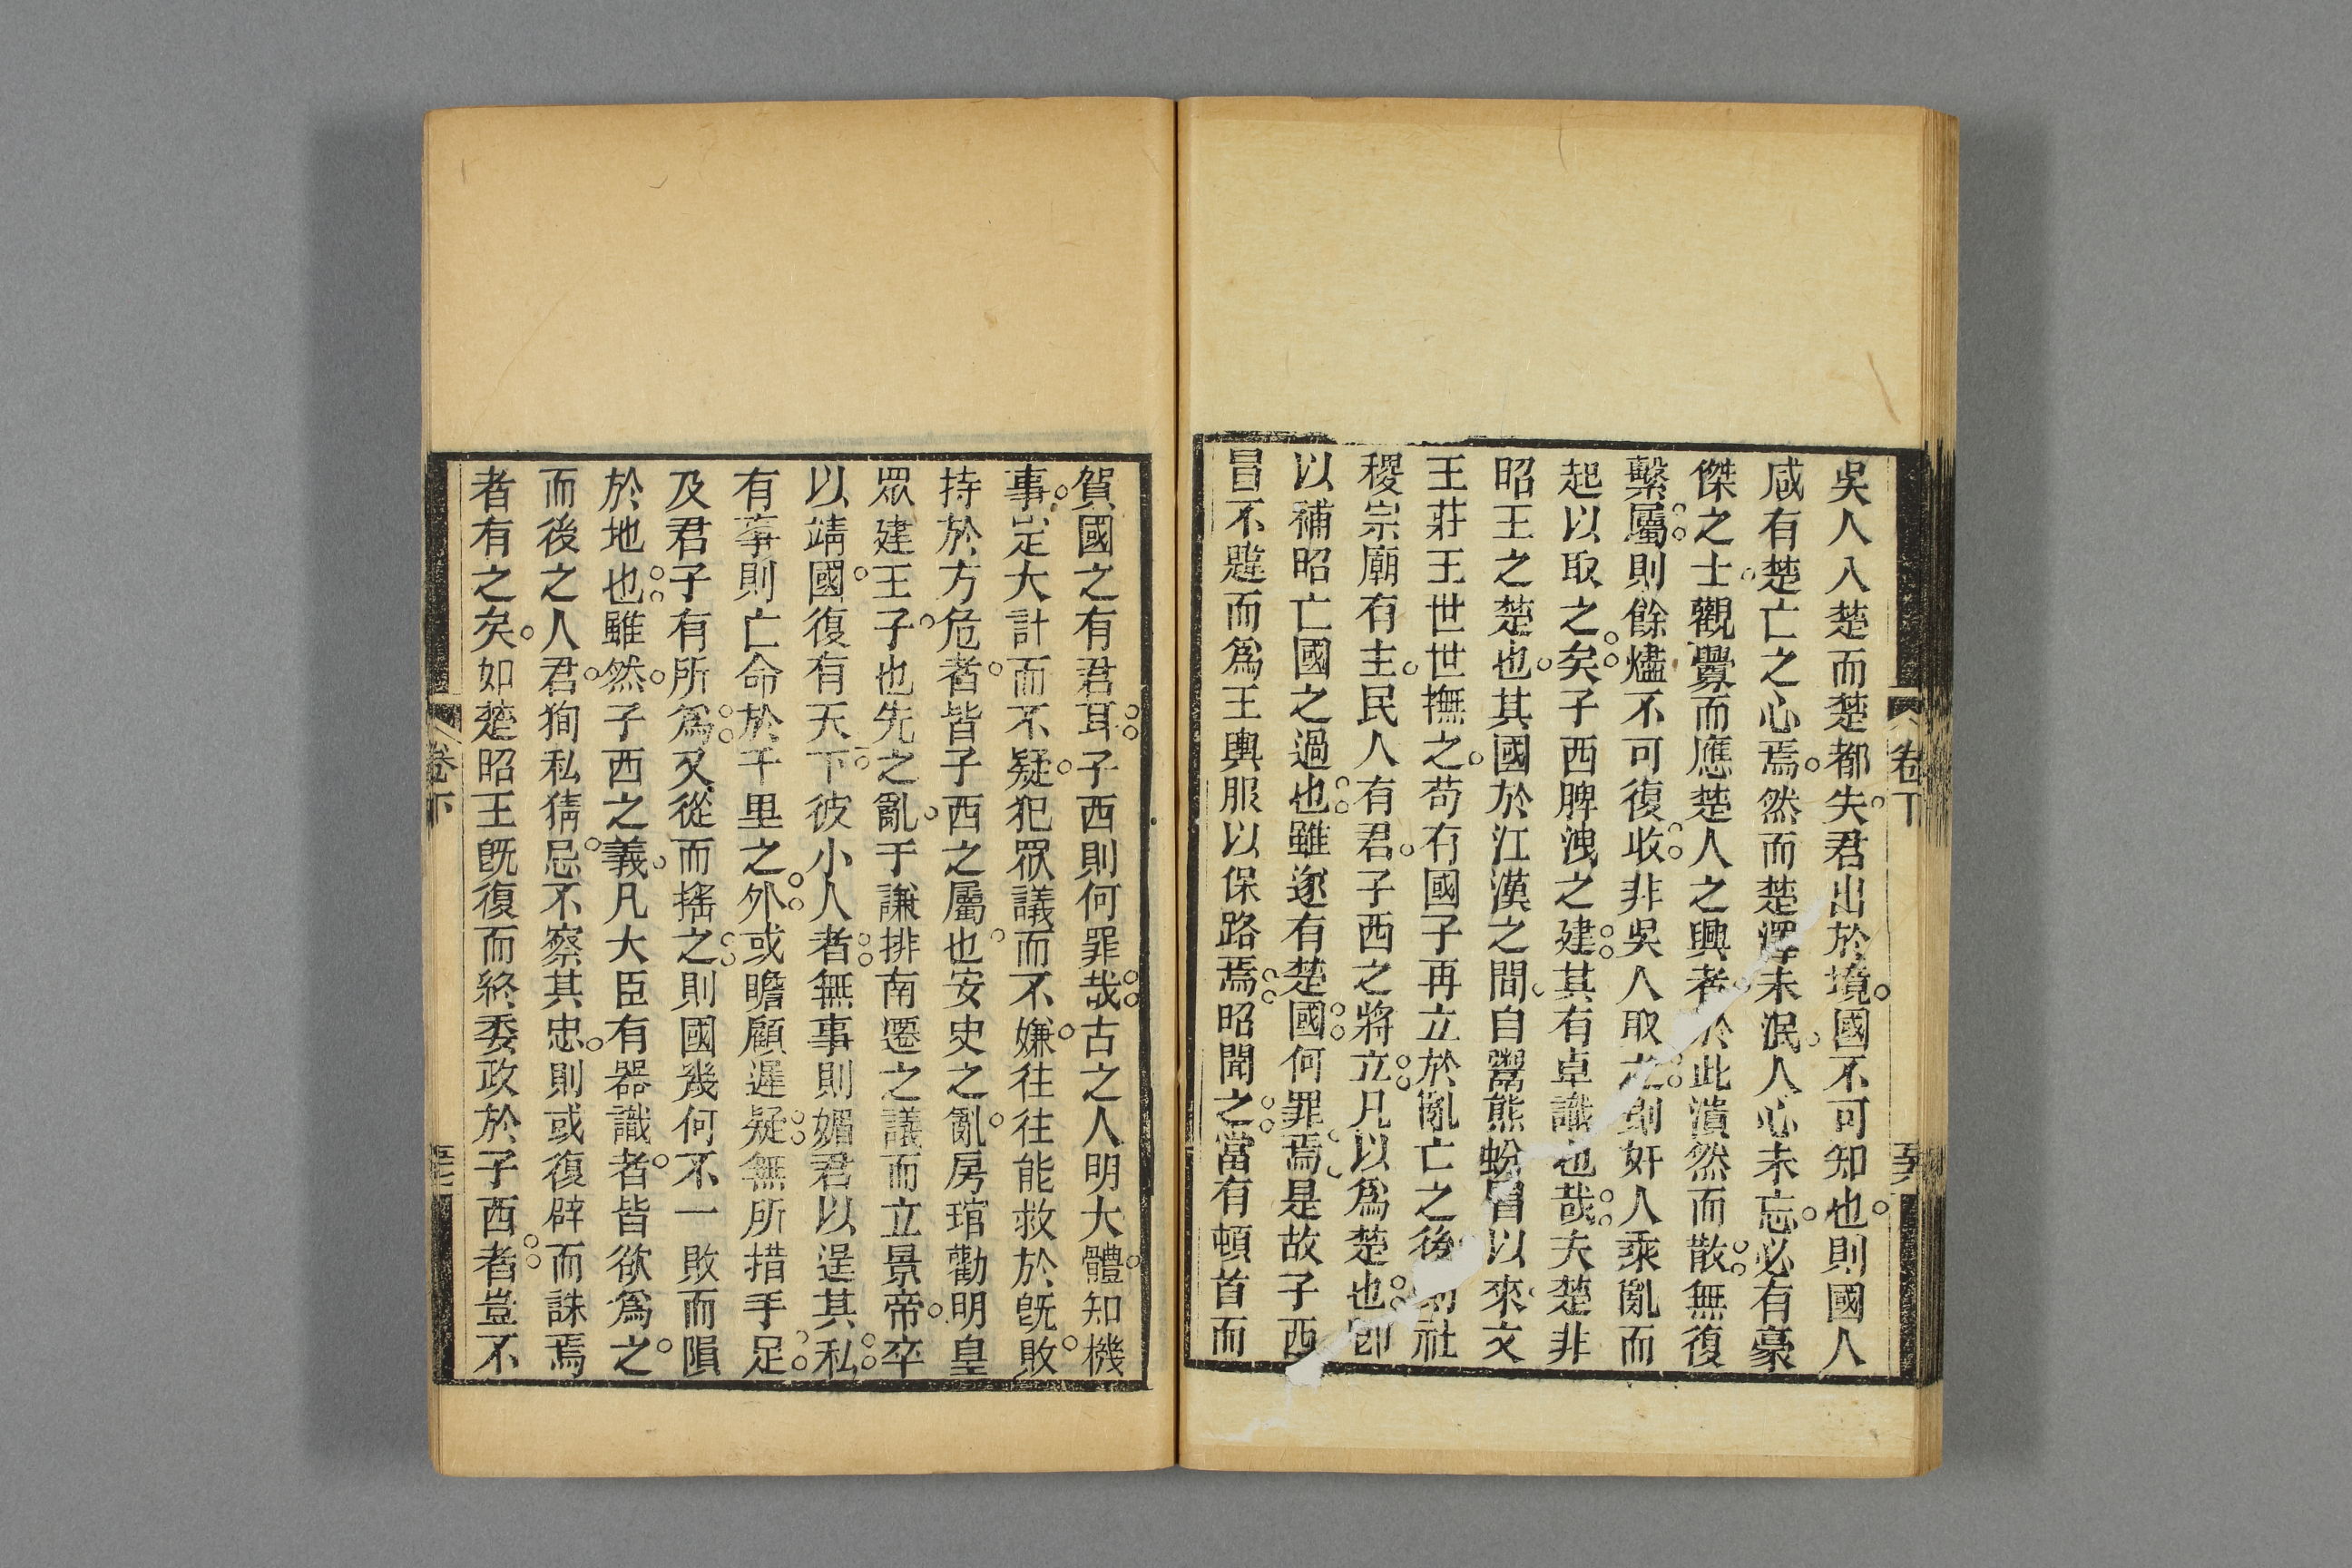 卷下
吳人入楚而楚都失君出於境國不可知也則國人
咸有楚亡之心焉然而楚澤未泯人心未忘必有豪
傑之士觀釁而應楚人之興者於此潰然而散無復
繫屬則餘燼不可復收非吳人取之則奸人乘亂而
起以取之矣子西脾洩之建其有卓識也哉夫楚非
昭王之楚也其國於江漢之間自鬻熊蚡冒以來文
王莊王世世撫之苟有國子再立於亂亡之後則社
稷宗廟有主民人有君子西之將立凡以爲楚也卽
以補昭亡國之過也雖遂有楚國何罪焉是故子西
冒不韙而爲王輿服以保路焉昭聞之當有頓首而
賀國之有君耳子西則何罪哉古之人明大體知機
事定大計而不疑犯眾議而不嫌往往能救於旣敗
持於方危者皆子西之屬也安史之亂房琯勸明皇
眾建王子也先之亂于謙排南遷之議而立景帝卒
以靖國復有天下彼小人者無事則媚君以逞其私
有事則亡命於千里之外或瞻顧遲疑無所措手足
及君子有所爲又從而搖之則國幾何不一敗而隕
於地也雖然子西之義凡大臣有器識者皆欲爲之
而後之人君狥私猜忌不察其忠則或復辟而誅焉
者有之矣如楚昭王旣復而終委政於子西者豈不
卷下